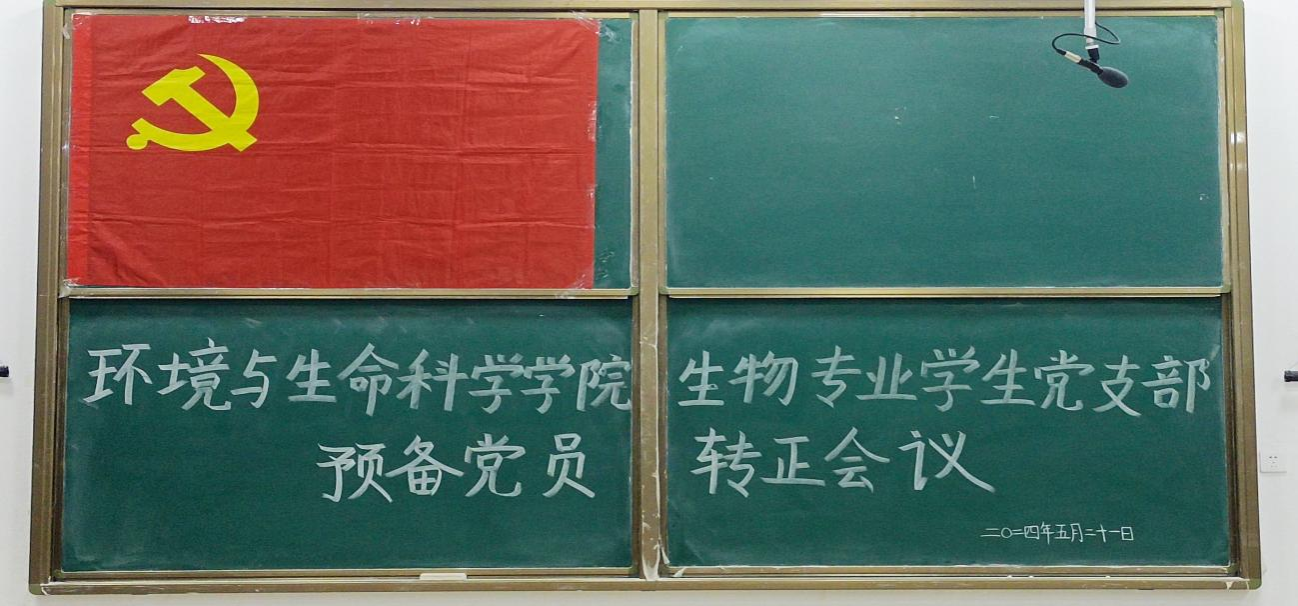 环境与生命科学学院 生物专业学生党支部
预备党员 转正会议
二〇二四年五月二十一日